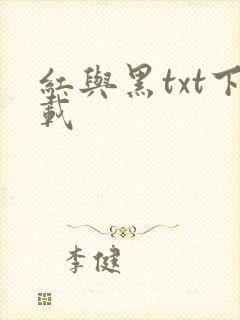 紅與黑txt下
載
李健